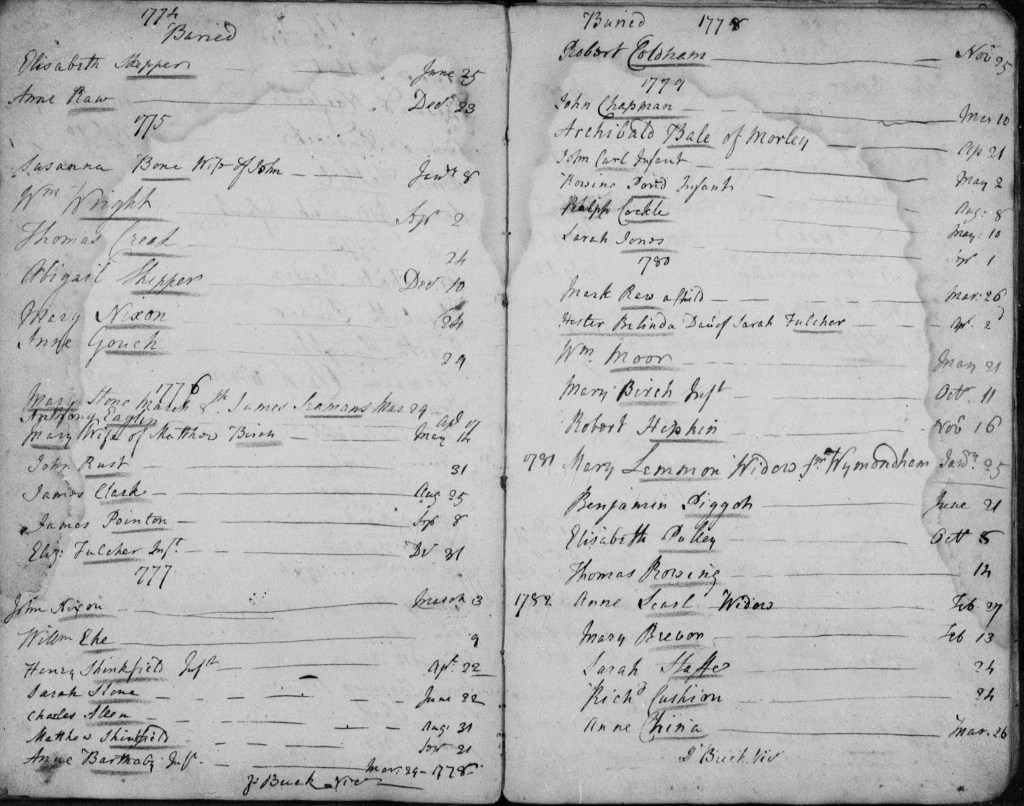 1774
Buried
Elisabeth Skepper June 25
Anne Raw Decr 23
1775
Susanna Bone Wife of John Janry 8
Wm Wright Apr 2
Thomas Cread 24
Abigail Skepper Decr 10
Mary Nixon 24
Anne Gouch 29
1776
Mary Stone March James Seamans Mar 29
Anthony Eaglin Apl 17
Mary Wife of Matthew Birch May 14
John Rust 31
James Clark Aug 25
James Pointon Sep 8
Eliz: Fulcher Inft Dec 31
1777
John Nixon March 3
Willm Eke 9
Henry Shinkfield Inft Apl 22
Sarah Stone June 22
Charles Aleen Aug: 31
Matthew Shinkfield 21
Anne Barthaby Inf. Mar: 29 - 1778
J: Buck Vic
Buried 1778
Robert Coldham Novr 25
1779
John Chapman Mar 10
Archibald Bale of Morley Ap 21
John Carl Infant May 2
Infant Aug: 8
Ralph Cockle May: 10
Sarah Jones Apr 1
1780
Mark Raw a Child Mar: 26
Hester Belinda Dau: of Sarah Fulcher Ap. 2d
Wm Moor May 21
Mary Birch Inft Octr 11
Robert Hepkin Novr 16
1781 Mary Lemmon Widow from Wymondham Janry 25
Benjamin Piggott June 21
Elisabeth Pulley Octr 8
Thomas Rowing 14
1782 Anne Searl Widow Feb 27
Mary Brevor Feb 13
Sarah Steffe 24
Richd Cushion 24
Anne China Mar: 26
J: Buck Vic